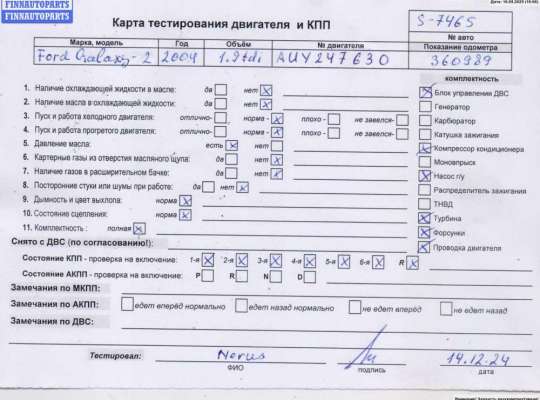 FINNAUTOPARTS
FINNAUTOPARTS
Карта тестирования двигателя и КПП
S-7465
№ авто
Марка, модель Год Объём № двигателя Показание одометра
Ford Galaxy-2 2004 1.9tdi AUY247630 360989
комплектность
1. Наличие охлаждающей жидкости в масле: да нет
Блок управления ДВС
2. Наличие масла в охлаждающей жидкости: да нет
Генератор
3. Пуск и работа холодного двигателя: отлично- норма - плохо - не завелся-
Карбюратор
4. Пуск и работа прогретого двигателя: отлично- норма - плохо - не завелся-
Катушка зажигания
5. Давление масла: есть нет
Компрессор кондиционера
6. Картерные газы из отверстия масляного щупа: да нет
Моновпрыск
7. Наличие газов в расширительном бачке: да нет
Насос г/у
8. Посторонние стуки или шумы при работе: да нет
Распределитель зажигания
9. Дымность и цвет выхлопа: норма
ТНВД
10. Состояние сцепления: норма
Турбина
11. Комплектность : полная
Форсунки
Снято с ДВС (по согласованию!):
Проводка двигателя
Состояние КПП - проверка на включение: 1-я 2-я 3-я 4-я 5-я 6-я R
Состояние АКПП - проверка на включение: P R N D
Замечания по МКПП:
Замечания по АКПП: едет вперёд нормально едет назад нормально не едет вперёд не едет назад
Замечания по ДВС:
Тестировал: 14.12.24
ФИО подпись дата